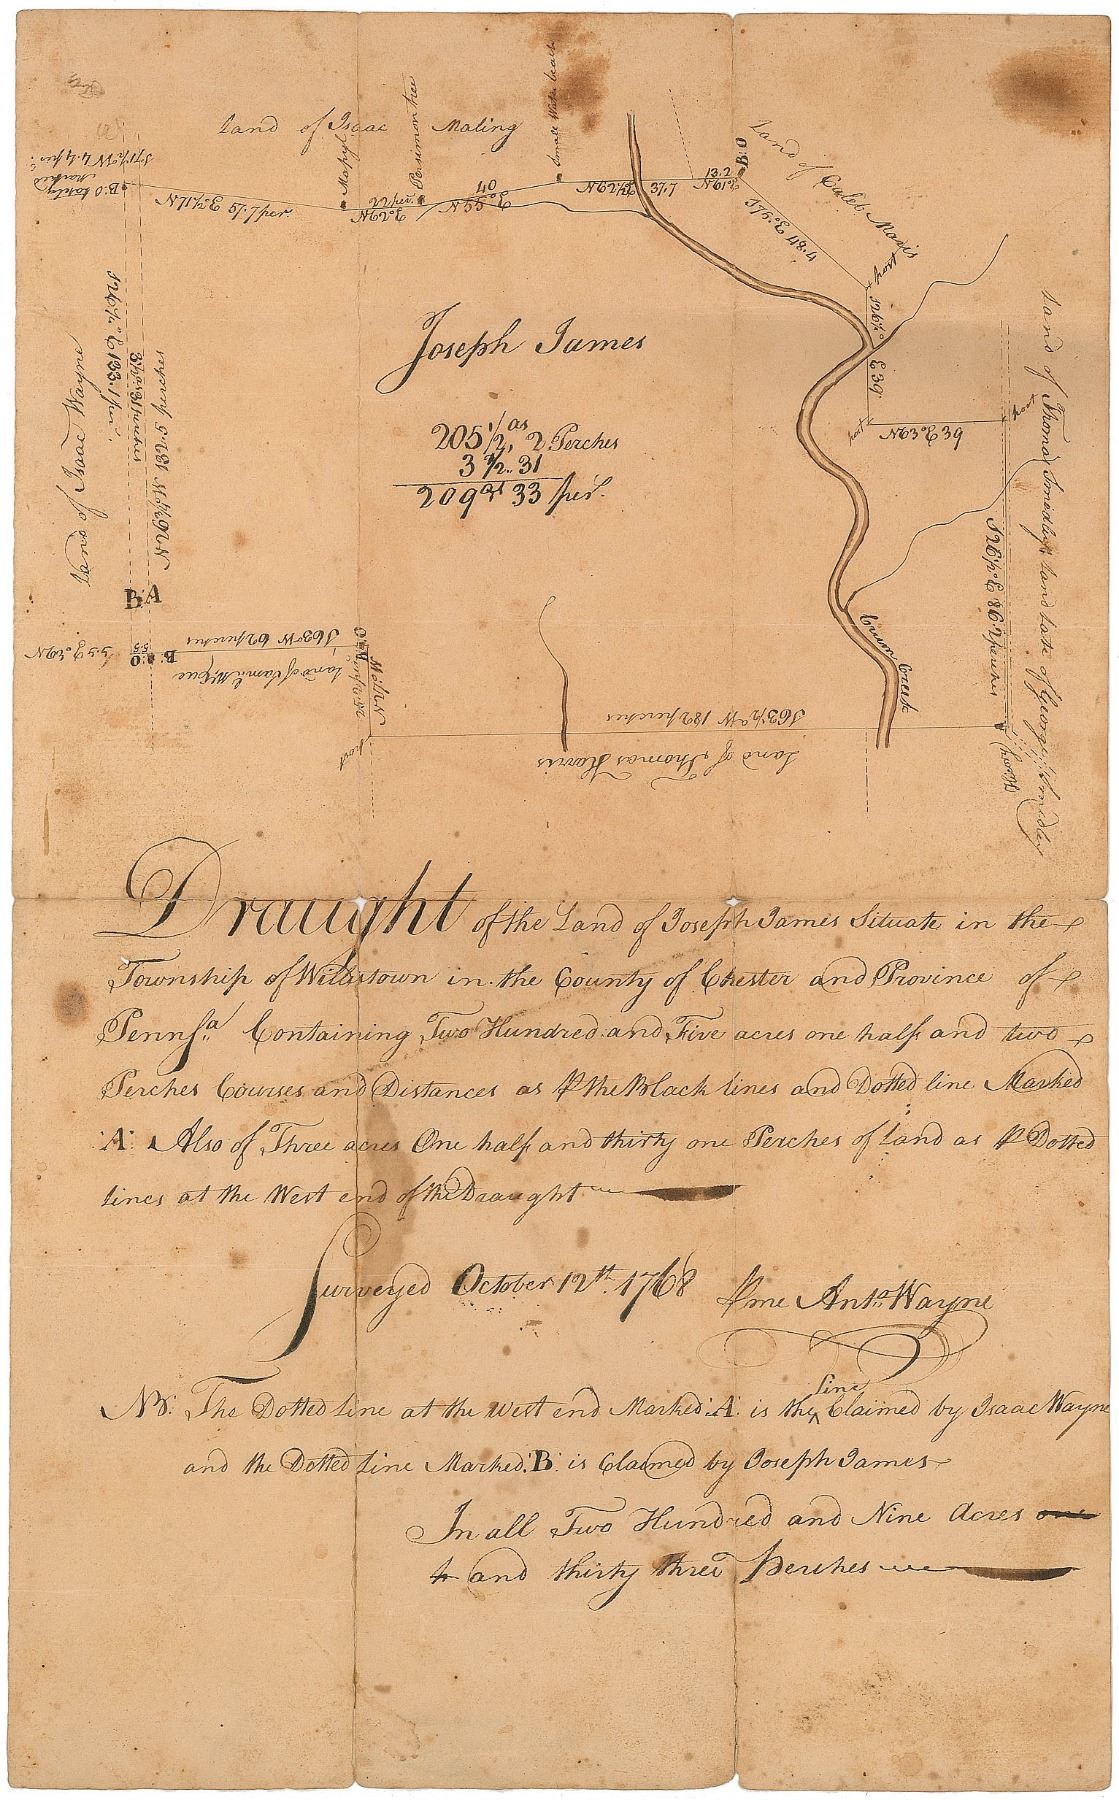 Land of Isaac Maling
Mapyl
Persimon tree
Small White
B:O
Land of Caleb Maris
post
S 26½°
E 39
post
N 63° E 39
post
13.2
N 61° E
N 62½ E 37.7
40
N 55° E
N 29° E
N 17° E 57.7 per.
B:O
S 75° E 48.4
Land of Isaac Wayne
S 26½° E 133.1 per.
N 26½ W 132.5 perches
B A
Joseph James
205 1/2 as, 2 Perches
3 1/2 .. 31
209 as 33 per.
S 63° W 62 perches
Land of
B:O
post
S 63½° W 182 perches
Land of Thomas Harris
Crum Creek
S 26½° E 86.7 perches
Land of Thomas Smedley land late of George Smedley
Draught of the Land of Joseph James Situate in the
Township of Willistown in the County of Chester and Province of
Pennsa. Containing Two Hundred and Five acres one half and two
Perches Courses and Distances as ⅌ the Black lines and Dotted line Marked
:A: Also of Three acres One half and thirty one Perches of land as ⅌ Dotted
lines at the West end of the Draught
Surveyed October 12th. 1768 ⅌ me Anto. Wayne
NB: The Dotted line at the west end Marked :A: is the Line Claimed by Isaac Wayne
and the Dotted line Marked :B: is Claimed by Joseph James
In all Two Hundred and Nine Acres one
and thirty three Perches